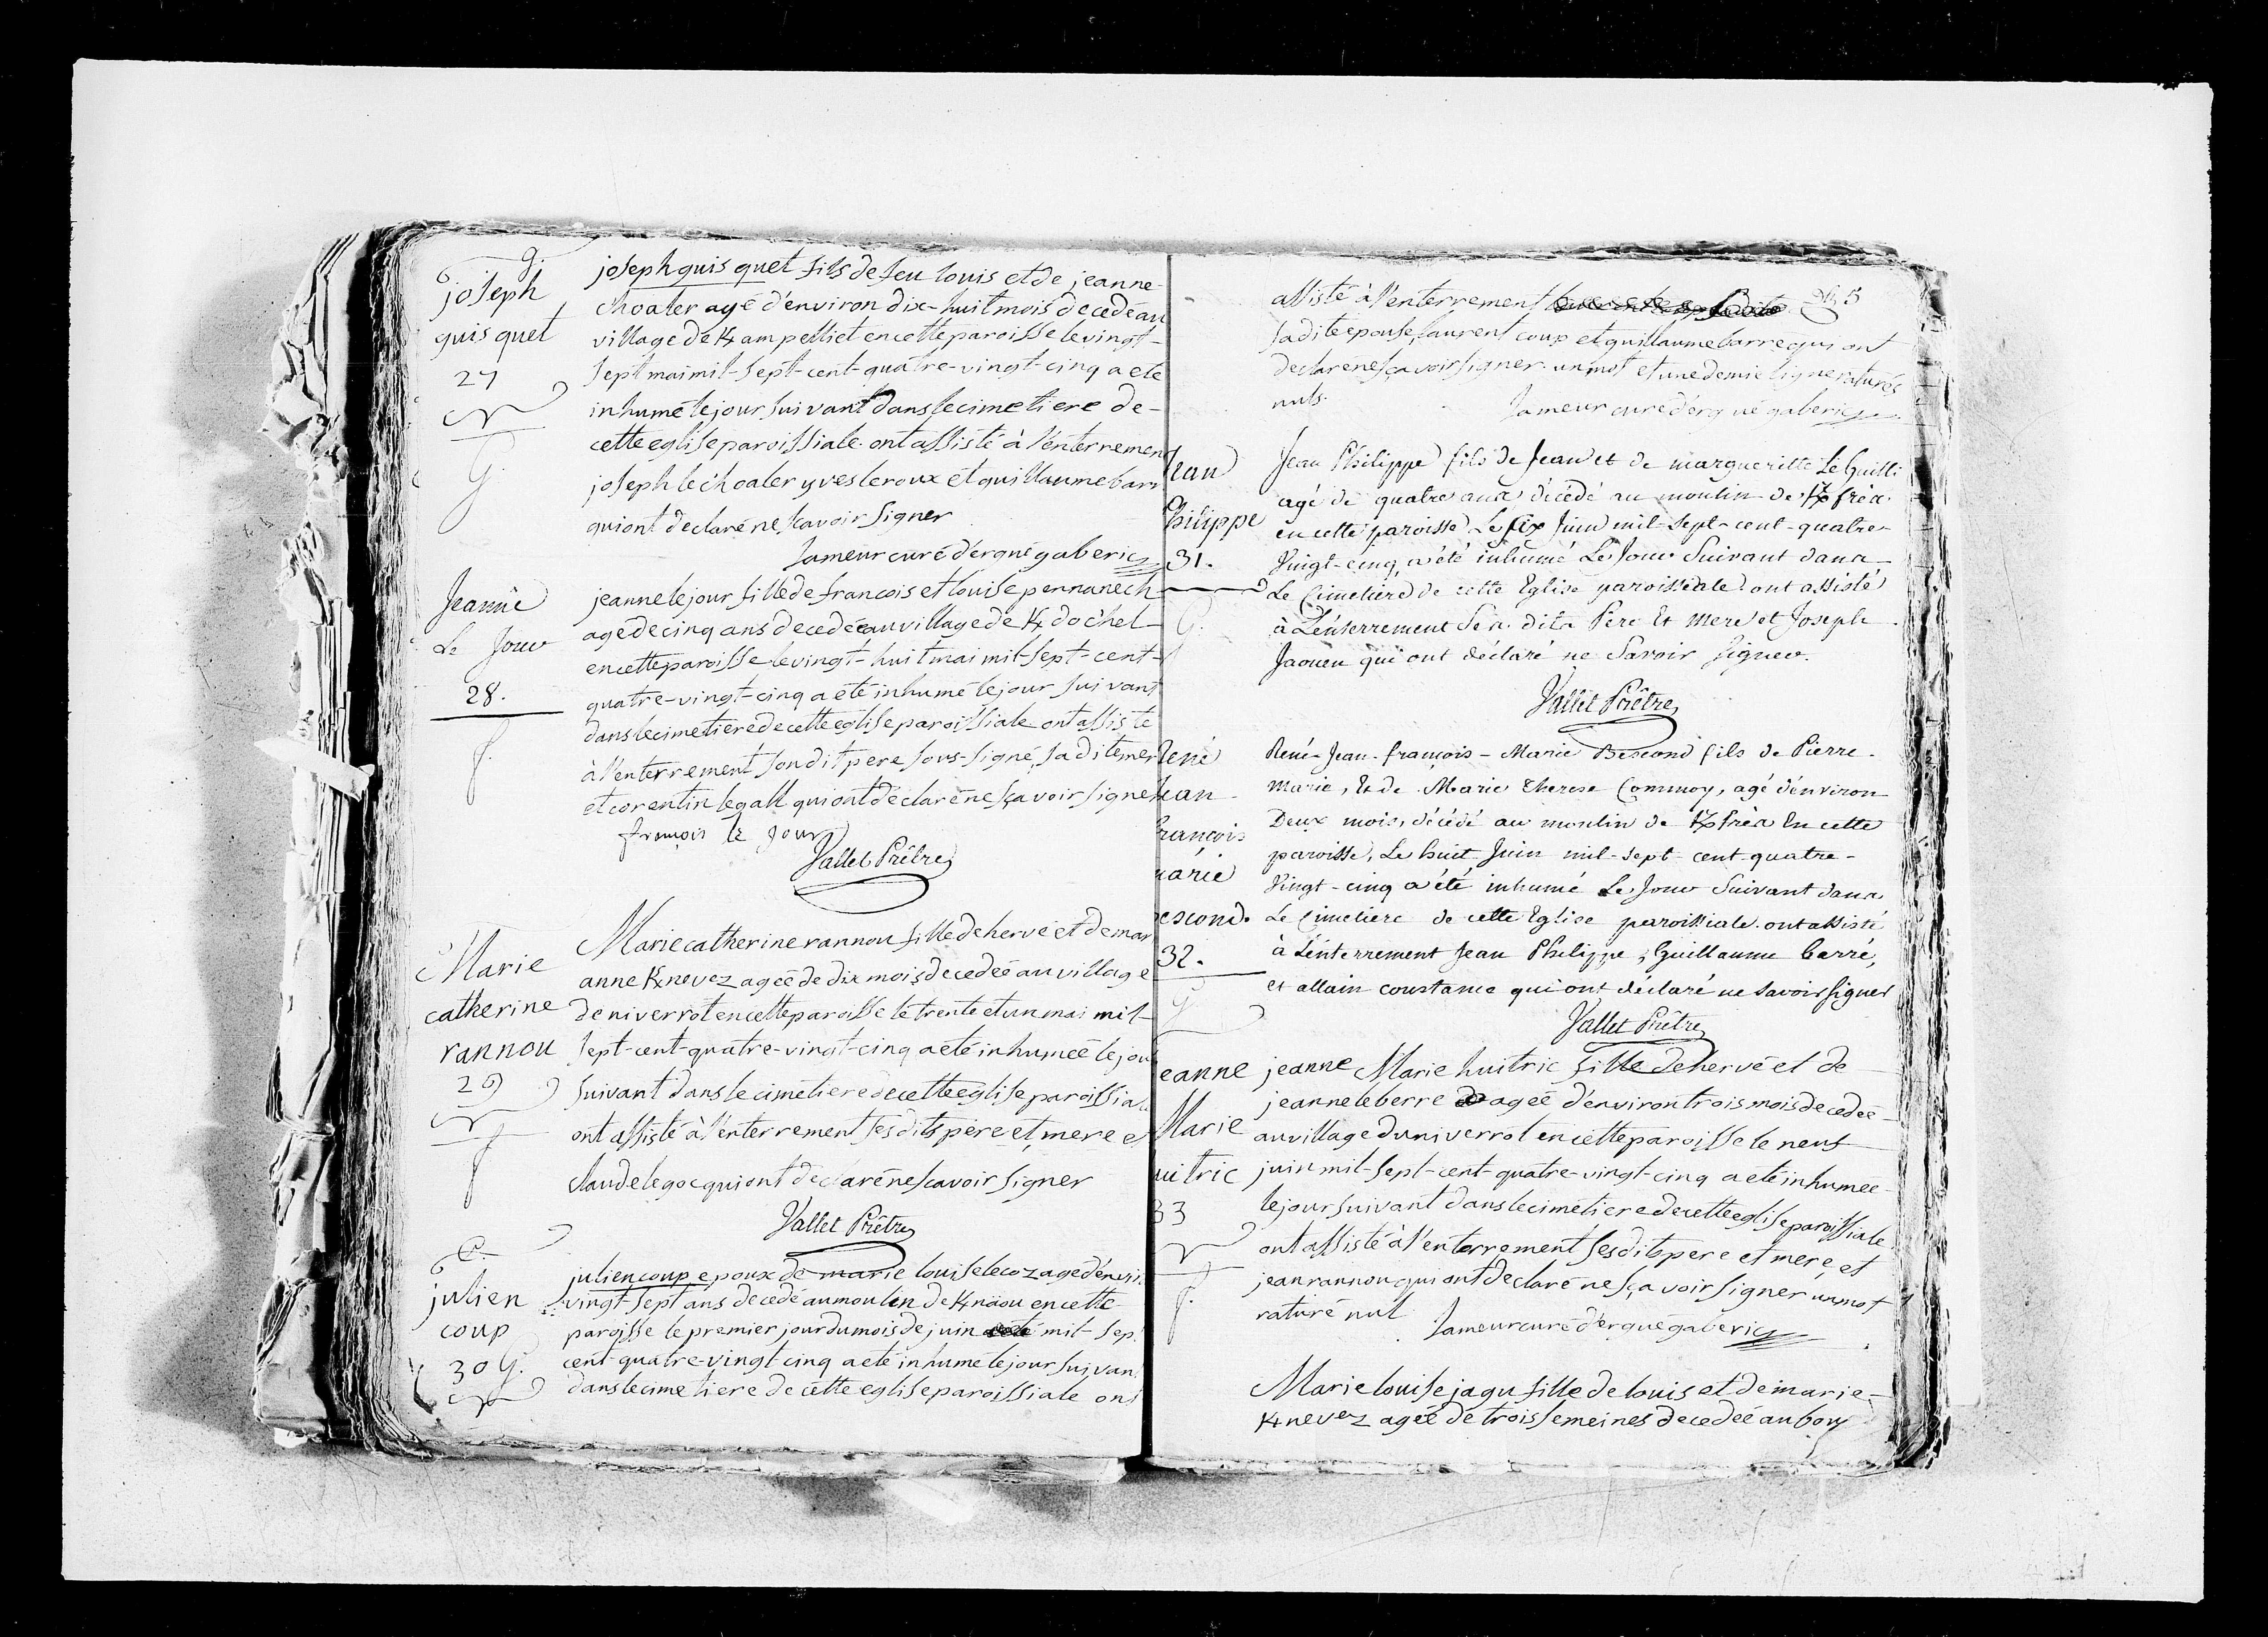 g.
joseph
guisquet
27
G.
joseph guis quet fils de feu louis et de jeanne
choaler agé d'environ dix-huit mois decedé au
village de K/ampelliet en cette paroisse le vingt-
sept mai mil-sept-cent-quatre-vingt-cinq a eté
inhumé le jour suivant dans le cimetiere de-
cette eglise paroissiale. ont assisté à l'enterremen
joseph le choaler yves le roux et guillaume bar
qui ont declaré ne scavoir signer
lameur curé d'ergué gaberic
Jeanne
Le Jour
28.
f.
jeanne le jour fille de francois et louise pennanech
agé de cinq ans decedée au village de K/dochel
en cette paroisse le vingt-huit mai mil-sept-cent-
quatre-vingt-cinq a été inhumé le jour suivant
dans le cimetiere de cette eglise paroissiale ont assisté
à l'enterrement son dit pere sous-signé, sa dite mer
et corentin le gall qui ont déclaré ne sçavoir signe
françois le Jour
Vallet Prêtre
Marie
catherine
rannou
29
f
Marie catherine rannou fille de hervé et de mar
anne K/nevez ageé de dix mois decedeé au village
de niverrot en cette paroisse le trente et un mai mil-
sept-cent-quatre-vingt-cinq a eté inhumeé le jou
suivant dans le cimetiere de cette eglise paroissia
ont assisté à l'enterrement ses dits père et mere e
Claude le goc qui ont declaré ne scavoir signer
Vallet Prêtre
C.
julien
coup
30 G.
julien coup epoux de marie louise le coz agé d'envi
vingt-sept ans decedé au moulin de K/naou en cette
paroisse le premier jour du mois de juin mil-sep
cent-quatre-vingt cinq a eté inhumé le jour suivan
dans le cimetiere de cette eglise paroissiale ont
assisté à l'enterrement
sa dite epouse, laurent coup et guillaume barre qui ont
declaré ne sçavoir signer. un mot et une demie ligne raturés
nuls.
lameur curé d'ergué gaberic
Jean
Philippe
31.
G.
Jean Philippe fils de Jean et de margueritte Le Guilli
agé de quatre ans décédé au moulin de K/fréa.
en cette paroisse Le six Juin mil-sept-cent-quatre-
Vingt-cinq, a été inhumé Le Jour Suivant dans
Le Cimetiere de cette Eglise paroissiale. ont assisté
à L'enterrement Ses dits Pere Et Mere et Joseph
Jaouen qui ont déclaré ne Savoir signer.
Vallet Prêtre
René
Jean
François
marie
escond.
32.
g
René-Jean-françois-Marie Bescond fils de Pierre-
Marie, Et de Marie Therese Commoy, agé d'environ
Deux mois, décédé au moulin de K/fréa En cette
paroisse, Le huit Juin mil-sept-cent-quatre-
Vingt-cinq a été inhumé Le Jour Suivant dans
Le Cimetiere de cette Eglise paroissiale. ont assisté
à L'enterrement Jean Philippe, Guillaume barré,
et allain coustans qui ont déclaré ne savoir signer
Vallet Prêtre
eanne
Marie
uitric
33
f.
jeanne Marie huitric fille de hervé et de
jeanne le berre ageé d'environ trois mois decedeé
au village du niverrot en cette paroisse le neuf
juin mil-sept-cent-quatre-vingt-cinq a eté inhumée
le jour suivant dans le cimetiere de cette eglise paroissiale.
ont assisté à l'enterrement ses dits pere et mere, et
jean rannou qui ont declaré ne sçavoir signer un mot
raturé nul
lameur curé d'ergué gaberic
Marie louise jagu fille de louis et de marie-
K/nevez ageé de trois semeines decedeé au bourg